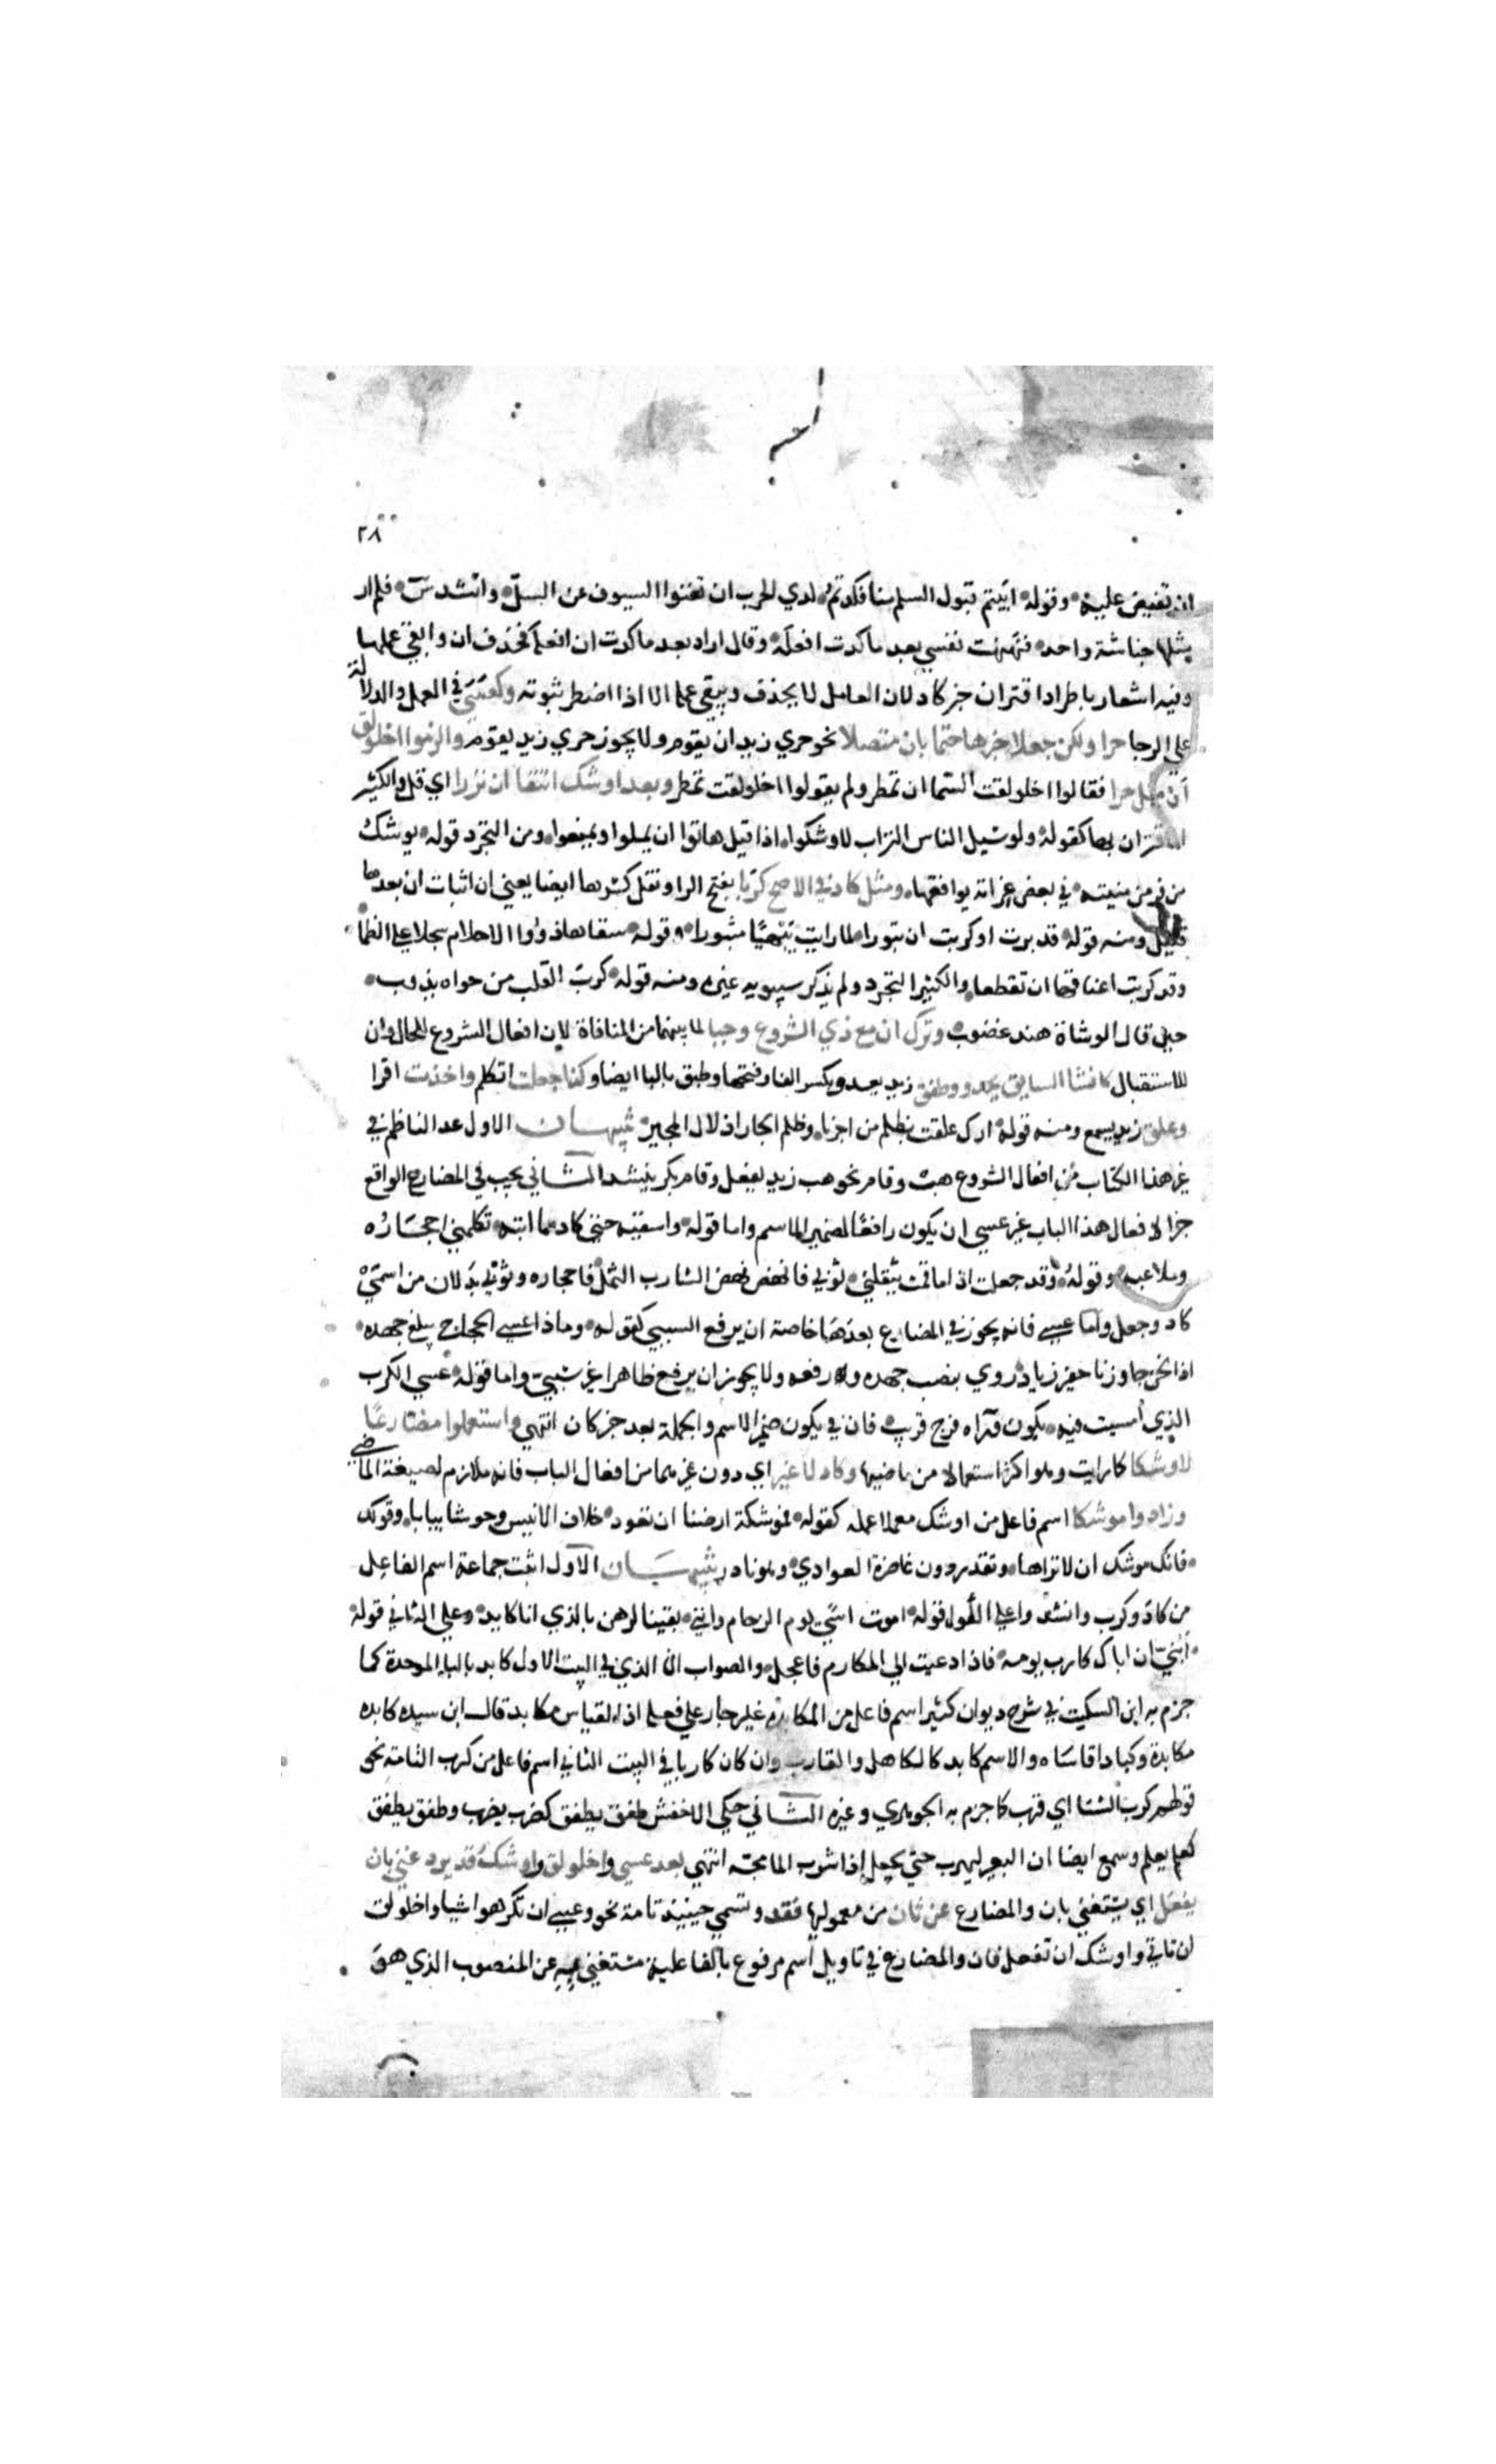 ٢٨
ان تفيض عليه وقوله ابيتم قبول السلم منا فكدتم لدي الحرب ان تغنوا السيوف عن السل وانشد س فلم ار
مثلها خباشة واحد فنهنهت نفسي بعد ما كدت افعله وقال اراد بعد ما كدت ان افعله فحذف ان وابقي عملها
وفيه اشعار باطراد اقتران خبر كاد لان العامل لا يحذف ويبقي عمله الا اذا اضطر ثبوته وكعسى في العمل والدلالة
علي الرجا حرا ولكن جعلا خبرها حتما بان متصلا نحو حري زيد ان يقوم ولا يجوز حري زيد يقوم والزموا اخلولق
ان مثل حرا فقالوا اخلولقت السما ان تمطر ولم يقولوا اخلولقت تمطر وبعد اوشك انتفا ان نزرا اي قل والكثير
الاقتران بها كقوله ولو سيل الناس التراب لاوشكوا اذا قيل هاتوا ان يملوا ويمنعوا ومن التجرد قوله يوشك
من فر من منيته في بعض غراته يوافقها ومثل كاد في الاصح كربا بفتح الرا ونقل كسرها ايضا يعني ان اثبات ان بعدها
قليل ومنه قوله قد برت او كربت ان تبورا لما رايت بيهسا مثبورا وقوله سقاها ذووا الاحلام سجلا علي الظما
وقد كربت اعناقها ان تقطعا والكثير التجرد ولم يذكر سيبويه غيره ومنه قوله كرب القلب من جواه يذوب
حين قال الوشاة هند غضوب وترك ان مع ذي الشروع وجبا لما بينهما من المنافاة لان افعال الشروع للحال وان
للاستقبال كانشا السايق يحدو وطفق زيد يعدو بكسر الفا وفتحها وطبق بالبا ايضا وكذا جعلت اتكلم واخذت اقرا
وعلق زيد يسمع ومنه قوله اراك علقت تظلم من اجرنا وظلم الجار اذلال المجير تنبيهان الاول عد الناظم في
غير هذا الكتاب من افعال الشروع هب وقام نحو هب زيد يفعل وقام بكر ينشد الثاني يجب في المضارع الواقع
خبرا لافعال هذا الباب غير عسي ان يكون رافعا لضمير الاسم واما قوله واسقيه حتي كاد مما ابثه تكلمني احجاره
وملاعبه وقوله وقد جعلت اذا ما قمت يثقلني ثوبي فانهض نهض الشارب الثمل فاحجاره وثوبي بدلان من اسمي
كاد وجعل واما عسي فانه يجوز في المضارع بعدها خاصة ان يرفع السببي كقوله وماذا عسي الحجاج يبلغ جهده
اذا نحن جاوزنا حفير زياد روي بنصب جهده ورفعه ولا يجوز ان يرفع ظاهرا غير سببي واما قوله عسي الكرب
الذي امسيت فيه يكون وراه فرج قريب فان في يكون ضمير الاسم والجملة بعد خبر كان انتهي واستعملوا مضارعا
لاوشكا كما رايت وهو اكثر استعمالا من ماضيها وكاد لا غير اي دون غيرهما من افعال الباب فانه ملازم لصيغة الماضي
وزادوا موشكا اسم فاعل من اوشك معملا عمله كقوله فموشكة ارضنا ان تعود خلاف الانيس وحوشا يبابا وقوله
فانك موشك ان لا تراها وتعدو دون غاضرة العوادي وهو نادر تنبيهان الاول اثبت جماعة اسم الفاعل
من كاد وكرب وانشدوا علي الاول قوله اموت اسي يوم الرجام وانني يقينا لرهن بالذي انا كايد وعلي الثاني قوله
ابني ان اباك كارب يومه فاذا دعيت الي المكارم فاعجل والصواب ان الذي في البيت الاول كابد بالباء الموحدة كما
جزم به ابن السكيت في شرح ديوان كثير اسم فاعل من المكابدة غير جار علي فعله اذ القياس مكابد قال ابن سيده كابده
مكابدة وكبادا قاساه والاسم كابد كالكاهل والقارب وان كان كاربا في البيت الثاني اسم فاعل من كرب التامة نحو
قولهم كرب الشتا اي قرب كما جزم به الجوهري وغيره الثاني حكي الاخفش طفق يطفق كضرب يضرب وطفق يطفق
كعلم يعلم وسمع ايضا ان البعير ليهرم حتي يجعل اذا شرب الما مجه انتهي بعد عسي واخلولق واوشك قد يرد غني بان
يفعل اي يستغني بان والمضارع عن ثان من معموليها فقد وتسمي حينئذ تامة نحو وعسي ان تكرهوا شيا واخلولق
ان تاتي واوشك ان تفعل فان والمضارع في تاويل اسم مرفوع بالفاعلية مستغني به عن المنصوب الذي هو